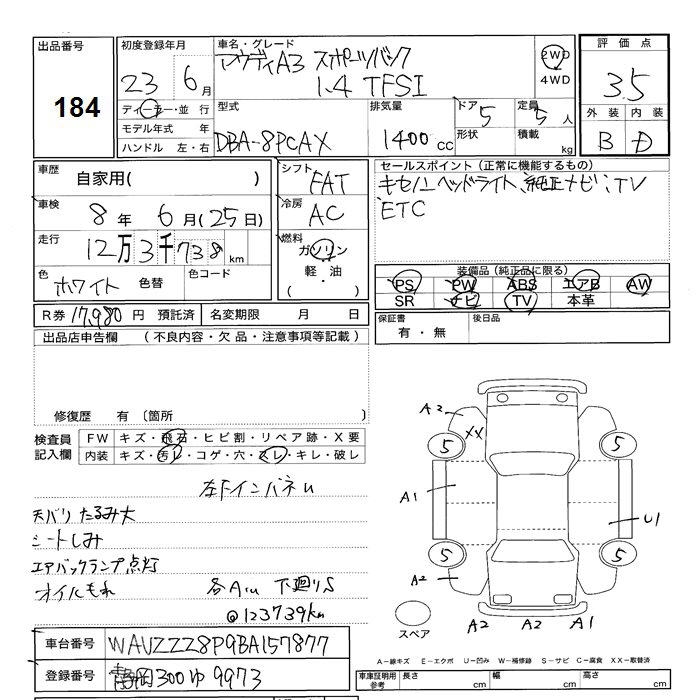 出品番号
184
初度登録年月
23 6月
ディーラー・並行
モデル年式 年
ハンドル 左・右
車名・グレード
アウディA3 スポーツバック
1.4 TFSI
2WD
4WD
型式
DBA-8PCAX
排気量
1400 cc
ドア 5
形状
定員 5 人
積載 kg
評価点
3.5
外装 内装
B D
車歴
自家用( )
車検
8年 6月(25日)
走行
12万3千738km
色
ホワイト 色替
色コード
シフト
FAT
冷房
AC
燃料
ガソリン
軽・油
( ・ )
セールスポイント(正常に機能するもの)
キセノンヘッドライト、純正ナビ、TV
ETC
装備品(純正品に限る)
PS PW ABS エアB AW
SR ナビ TV 本革
R券 17,980 円 預託済 名変期限 月 日
保証書
有・無
後日品
出品店申告欄 (不良内容・欠品・注意事項等記載)
修復歴 有 〔箇所
検査員
記入欄
FW キズ・飛石・ヒビ割・リペア跡・X要
内装 キズ・汚レ・コゲ・穴・スレ・キレ・破レ
左FインパネU
天バリ たるみ大
シートしみ
エアバックランプ点灯
オイルもれ
各A1U 下廻りS
@123739km
A2
XX
5
5
A1
U1
5
5
A2
A2 A2 A1
スペア
A−線キズ E−エクボ U−凹み W−補修跡 S−サビ C−腐食 XX−取替済
車台番号
WAUZZZ8P9BA157877
登録番号
静岡300ゆ9973
車庫証明用
参考
長さ cm
幅 cm
高さ cm